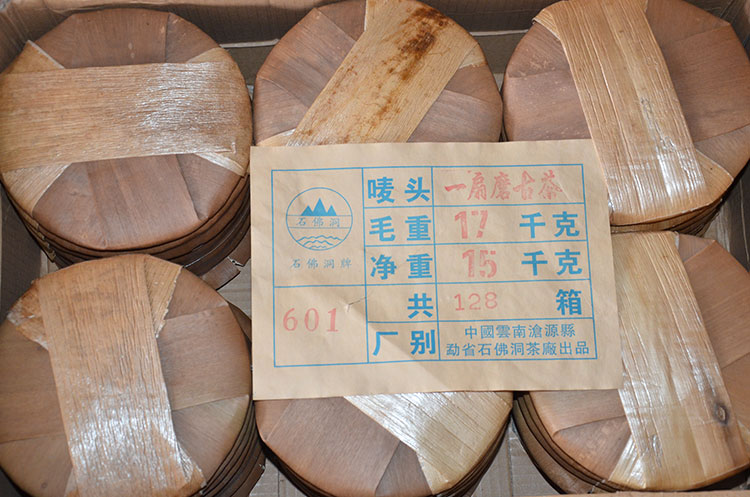 石佛洞
石佛洞牌
601
唛头 一扇磨古茶
毛重 17 千克
净重 15 千克
共 128 箱
厂别 中國雲南滄源縣
勐省石佛洞茶廠出品